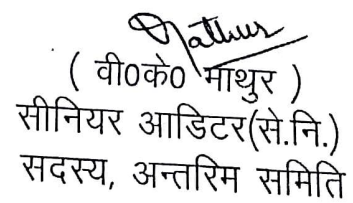 Mathur
( वी0के0 माथुर )
सीनियर आडिटर(से.नि.)
सदस्य, अन्तरिम समिति